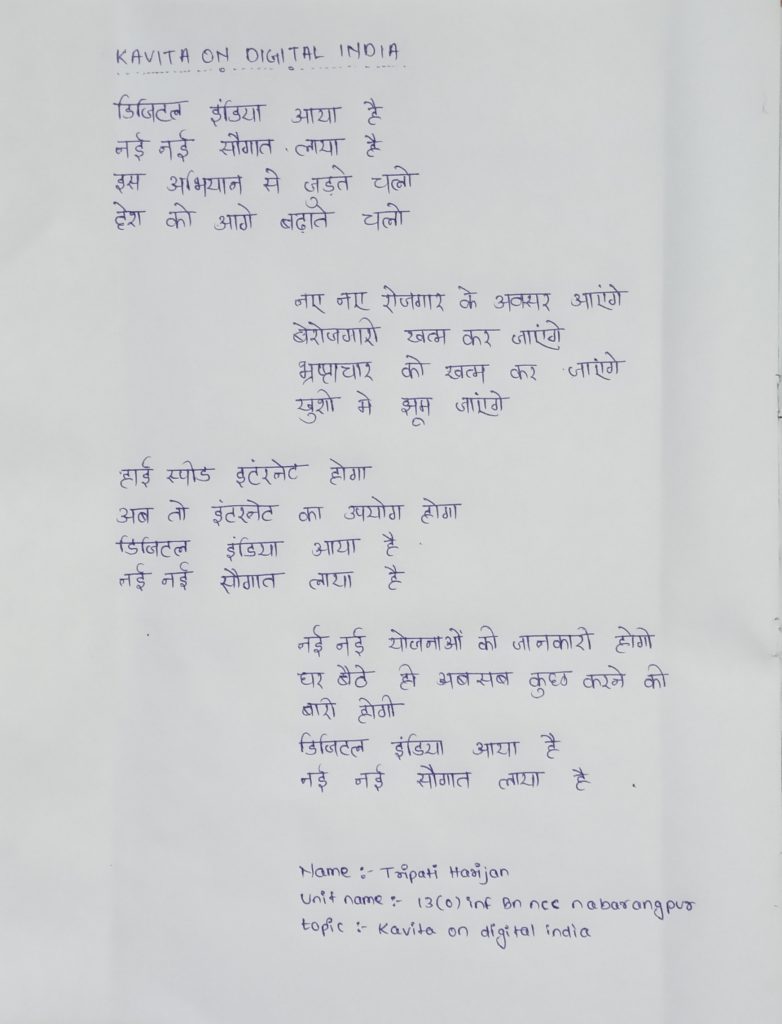 KAVITA ON DIGITAL INDIA
डिजिटल इंडिया आया है
नई नई सौगात लाया है
इस अभियान से जुड़ते चलो
देश को आगे बढ़ाते चलो
नए नए रोजगार के अवसर आएंगे
बेरोजगारी खत्म कर जाएंगे
भ्रष्टाचार को खत्म कर जाएंगे
खुशी मे झूम जाएंगे
हाई स्पीड इंटरनेट होगा
अब तो इंटरनेट का उपयोग होगा
डिजिटल इंडिया आया है
नई नई सौगात लाया है
नई नई योजनाओं की जानकारी होगी
घर बैठे ही अबसब कुछ करने की
बारी होगी
डिजिटल इंडिया आया है
नई नई सौगात लाया है .
Name :- Tripati Harijan
Unit name :- 13(0) inf Bn ncc nabarangpur
topic :- Kavita on digital india